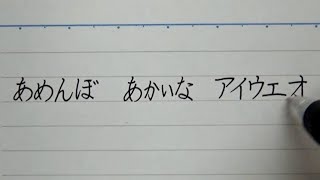 あめんぼ　あかいな　アイウエオ